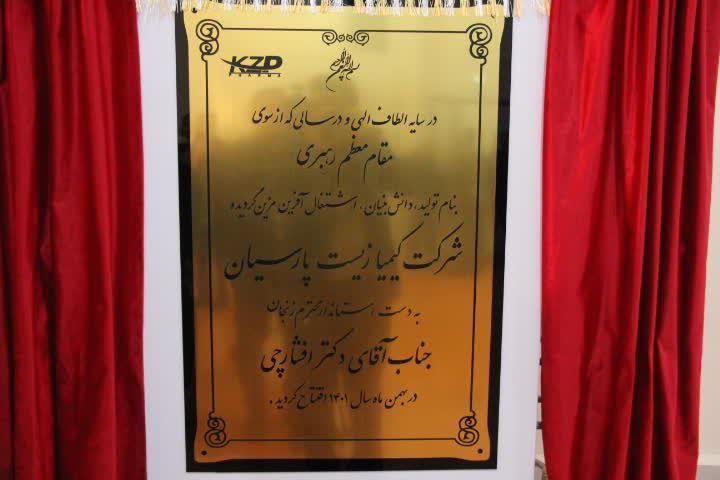 KZD
PHARMA
بسم الله الرحمن الرحیم
در سایه الطاف الهی و در سالی که از سوی
مقام معظم رهبری
بنام تولید، دانش بنیان، اشتغال آفرین مزین گردیده
شرکت کیمیا زیست پارسیان
به دست استاندار محترم زنجان
جناب آقای دکتر افشارچی
در بهمن ماه سال ۱۴۰۱ افتتاح گردید.